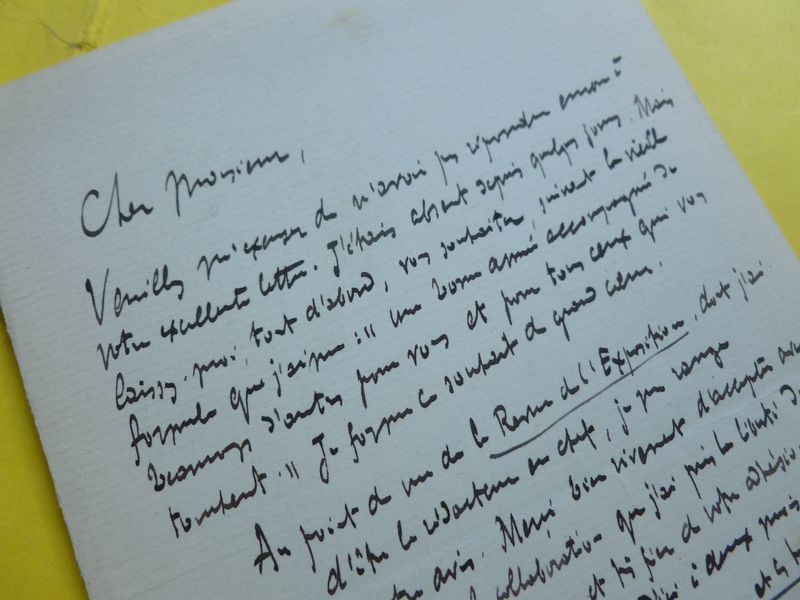 Cher Monsieur,
Veuillez m'excuser de n'avoir pas répondu encore à
votre excellente lettre. J'étais absent depuis quelques jours. Mais
laissez-moi, tout d'abord, vous souhaiter suivant la vieille
formule que j'aime : " une bonne année accompagnée de
beaucoup d'autres pour vous et pour tous ceux qui vous
touchent. " Je forme ce souhait de grand cœur.
Au point de vue de la Revue de l'Exposition, dont j'ai
d'être le rédacteur en chef, je me range
avis. Merci bien vivement d'accepter
collaboration que j'ai pris la liberté de
et très fier de votre adhésion
à deux mois
et les